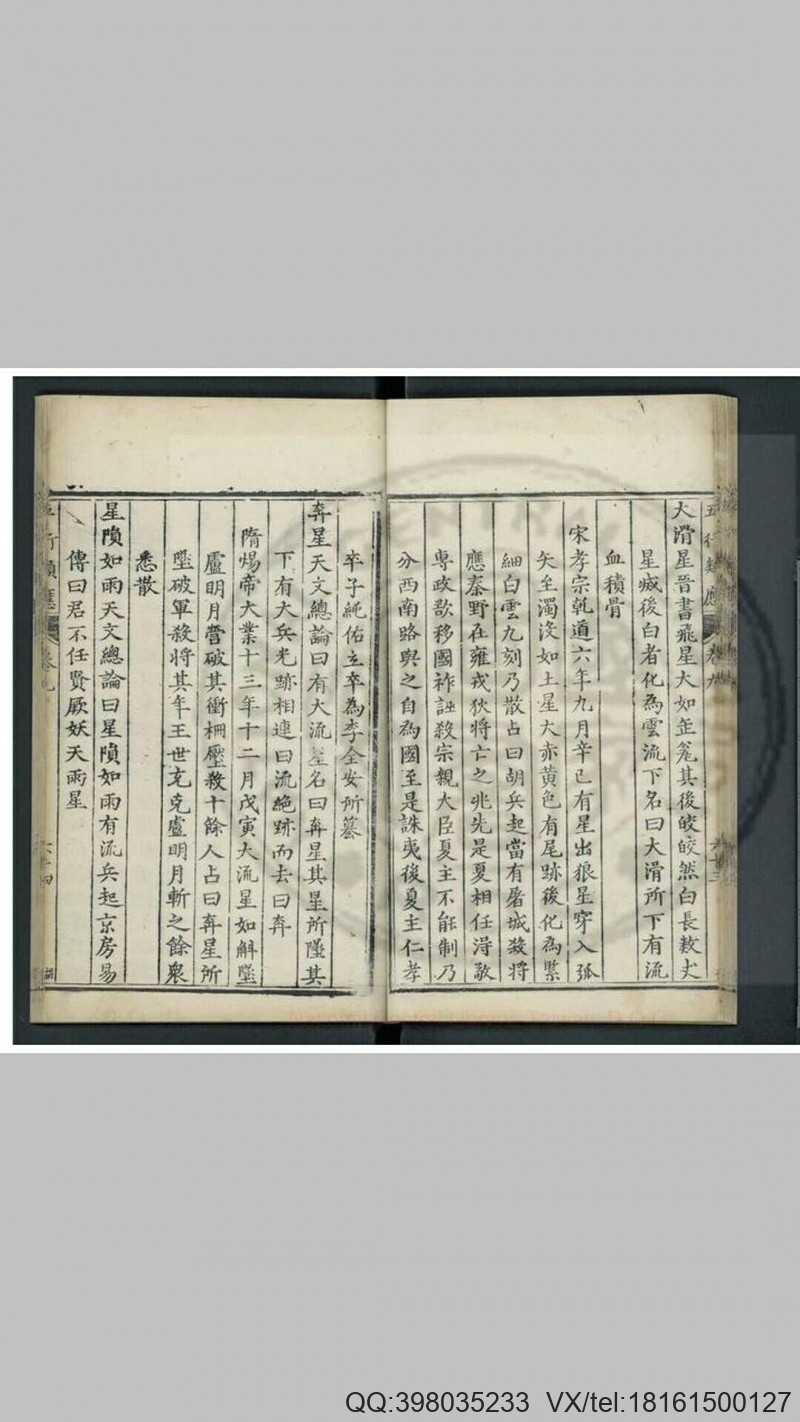 大滑星晉書飛星大如缶瓮其後皎皎然白長数丈
星滅後白者化為雲流下名曰大滑所下有流
血積骨
宋孝宗乹道六年九月辛巳有星出狼星穿入弧
矢至濁没如土星大赤黄色有尾跡後化為
細白雲九刻乃散占曰胡兵起當有屠城殺將
應秦野在雍戎狄將亡之兆先是夏相任淂敬
專政欲移國祚誣殺宗親大臣夏主不能制乃
分西南路與之自為國至是誅夷後夏主仁孝
卒子純佑立卒為李全安所篡
奔星天文總論曰有大流星名曰奔星其星所墜其
下有大兵光跡相連曰流絶跡而去曰奔
隋煬帝大業十三年十二月戊寅大流星如斛墜
盧明月營破其衝柵壓殺十餘人占曰奔星所
墜破軍殺將其年王世充克盧明月斬之餘衆
悉散
星隕如雨天文總論曰星隕如雨有流兵起京房易
傳曰君不任賢厥妖天雨星
五行類應 卷九
QQ:398035233 VX/tel:18161500127